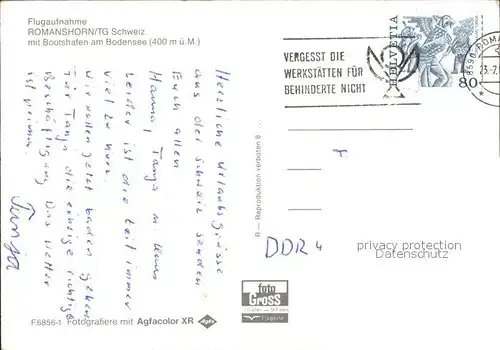 Flugaufnahme
ROMANSHORN/TG Schweiz
mit Bootshafen am Bodensee (400 m ü.M.)
Herzliche Urlaubsgrüsse
aus der Schweiz senden
Euch allen
Hanna, Tanja u. Klaus
Leider ist die Zeit immer
viel zu kurz.
Wir wollen jetzt baden gehen
für Tanja die einzige richtige
Beschäftigung. Das Wetter
ist prima.
Tanja
F6856-1 Fotografiere mit Agfacolor XR Agfa
VERGESST DIE
WERKSTÄTTEN FÜR
BEHINDERTE NICHT
HELVETIA
80
8590 ROMA
23-7
R — Reproduktion verboten 8
T
DDR 4
foto
GROSS
Flugbild
privacy protection
Datenschutz